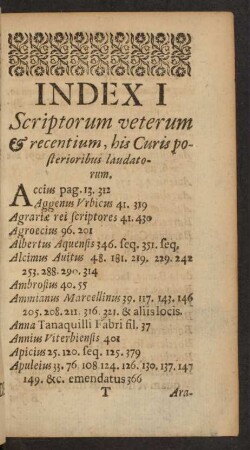 INDEX I
Scriptorum veterum
& recentium, his Curis po-
sterioribus laudato-
rum.
Accius pag. 13. 312
Aggenus Vrbicus 41. 319
Agrariæ rei scriptores 41. 430
Agroecius 96. 201
Albertus Aquensis 346. seq. 351. seq.
Alcimus Avitus 48. 181. 219. 229. 242
253. 288. 290. 314
Ambrosius 40. 55
Ammianus Marcellinus 39. 117. 143. 146
205. 208. 211. 316. 321. & aliis locis.
Anna Tanaquilli Fabri fil. 37
Annius Viterbiensis 401
Apicius 25. 120. seq. 125. 379
Apuleius 33. 76. 108. 124. 126. 130. 137. 147
149. &c. emendatus 366
T Ara-